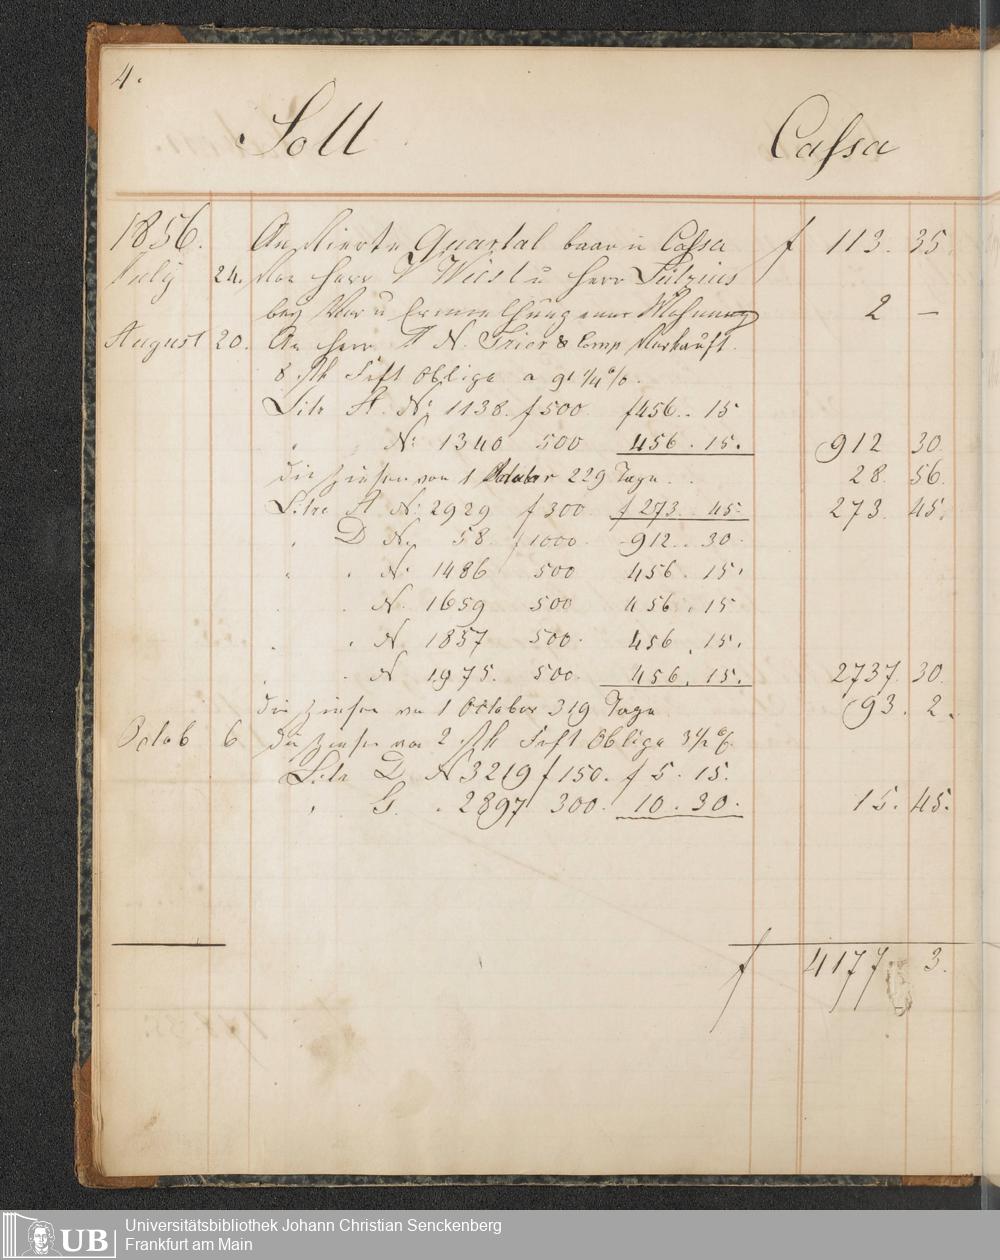 4.
Soll Cassa
1856. An vierte Quartal baar in Cassa f 113. 35.
July 24. Von Herr Wiesl u Herr Sulzius
bey Ver u Ermiethung einer Wohnung 2 —
August 20. An Herr A N. Trier & Comp Verkauft.
8 Stk Frft Oblige a 91 1/4 %.
Litr A. No. 1138. f 500. f 456. 15
" No. 1340 500 456. 15. 912 30.
die Zinsen von 1 October 229 Tage. 28. 56.
Litre A No. 2929 f 300. f 273. 45. 273. 45.
" D No. 58. f 1000. 912. 30.
" " No. 1486 500 456. 15.
" " N. 1659 500 456. 15
" " N 1857 500. 456. 15.
" " N 1975. 500. 456. 15. 2737. 30.
die Zinsen von 1 October 319 Tage 93. 2.
Octob 6 die Zinsen von 2 Stk Frft Oblige 3 1/2 %.
Litr D N 3219 f 150. f 5. 15.
" G. " 2897 300. 10. 30. 15. 45.
f 4177 3.
UB
Universitätsbibliothek Johann Christian Senckenberg
Frankfurt am Main